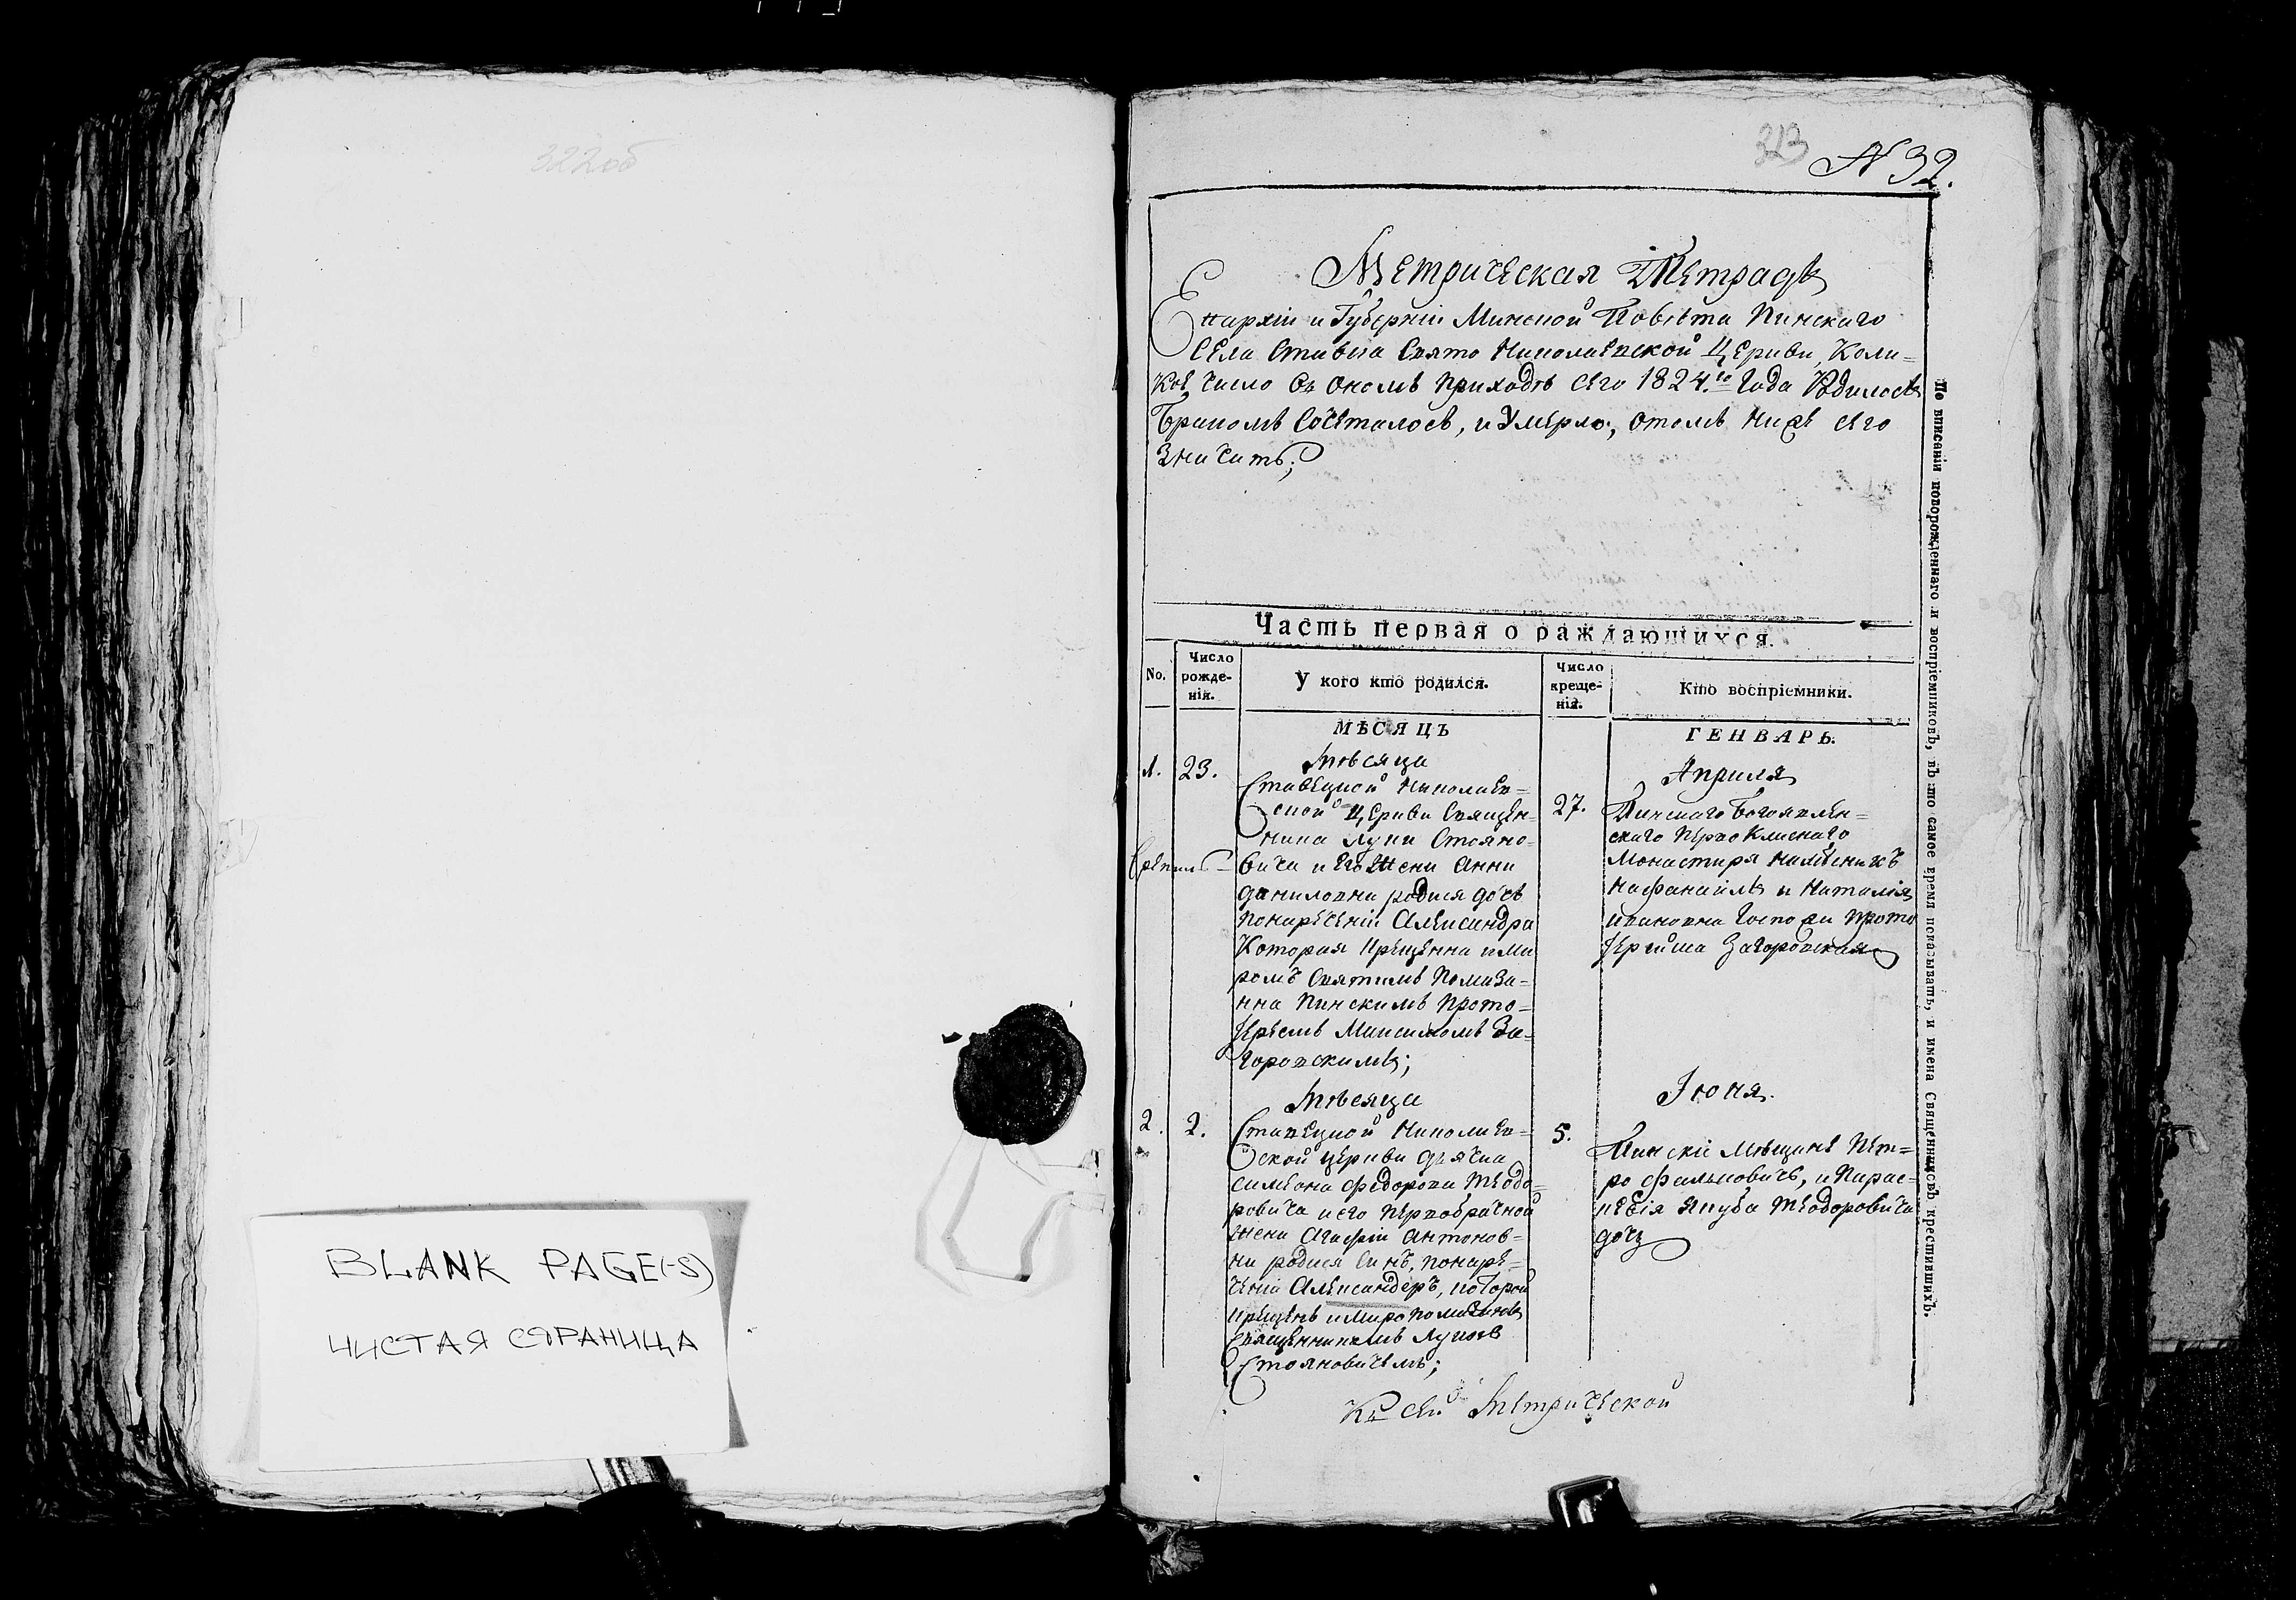 322об
BLANK PAGE(-S)
ЧИСТАЯ СТРАНИЦА
323
N 32.
Метрическая Тетрадь
Епархіи и Губерніи Минской Повѣта Пинскаго
Села Ставка Свято Николаевской Церкви, Коли=
кое число въ ономъ приходѣ сего 1824.го года родилось
Бракомъ Сочеталось, и Умерло, о томъ ниже сего
Значитъ;
Часть первая о раждающихся.
No.
Число рожде- нія.
У кого кто родился.
Число креще- нія.
Кто воспріемники.
МѢСЯЦЪ
ГЕНВАРЬ.
Мѣсяца
Апрѣля
1.
23.
Ставецкой Николаев=
ской Церкви Священ=
ника Луки Стояно=
вича и Его жени Анни
Даниловни родися дочь
Понаречении Александра
Которая Крещенна и Ми
ромъ Святимъ Помаза=
нна Пинскимъ Прото=
Іереемъ Максимомъ За=
горовскимъ;
27.
Пинскаго Богоявлен=
скаго Первокласнаго
Монастиря Намѣсникъ
Нафанаилъ и Наталія
Ивановна Госпожа Прото
Іерейша Загоровская
Мѣсяца
Іюня.
2.
2.
Ставецкой Николаев=
ской церкви дьячка
Симеона Федорова Теодо=
ровича и его первобрачной
жени Агафіи Антонов=
ни родися синъ, понаре=
ченіи Александеръ, которой
крещенъ и миропомазанъ
Священникомъ Лукою
Стояновичемъ;
5.
Пинскій Мѣщанинъ Пет=
ро Фалькович, и Парас=
кевія Якуба Теодоровича
дочь
Къ сей Метрической
По вписаніи новорожденнаго и воспріемниковъ, въ то самое время показывать, и имена Священниковъ крестившихъ.